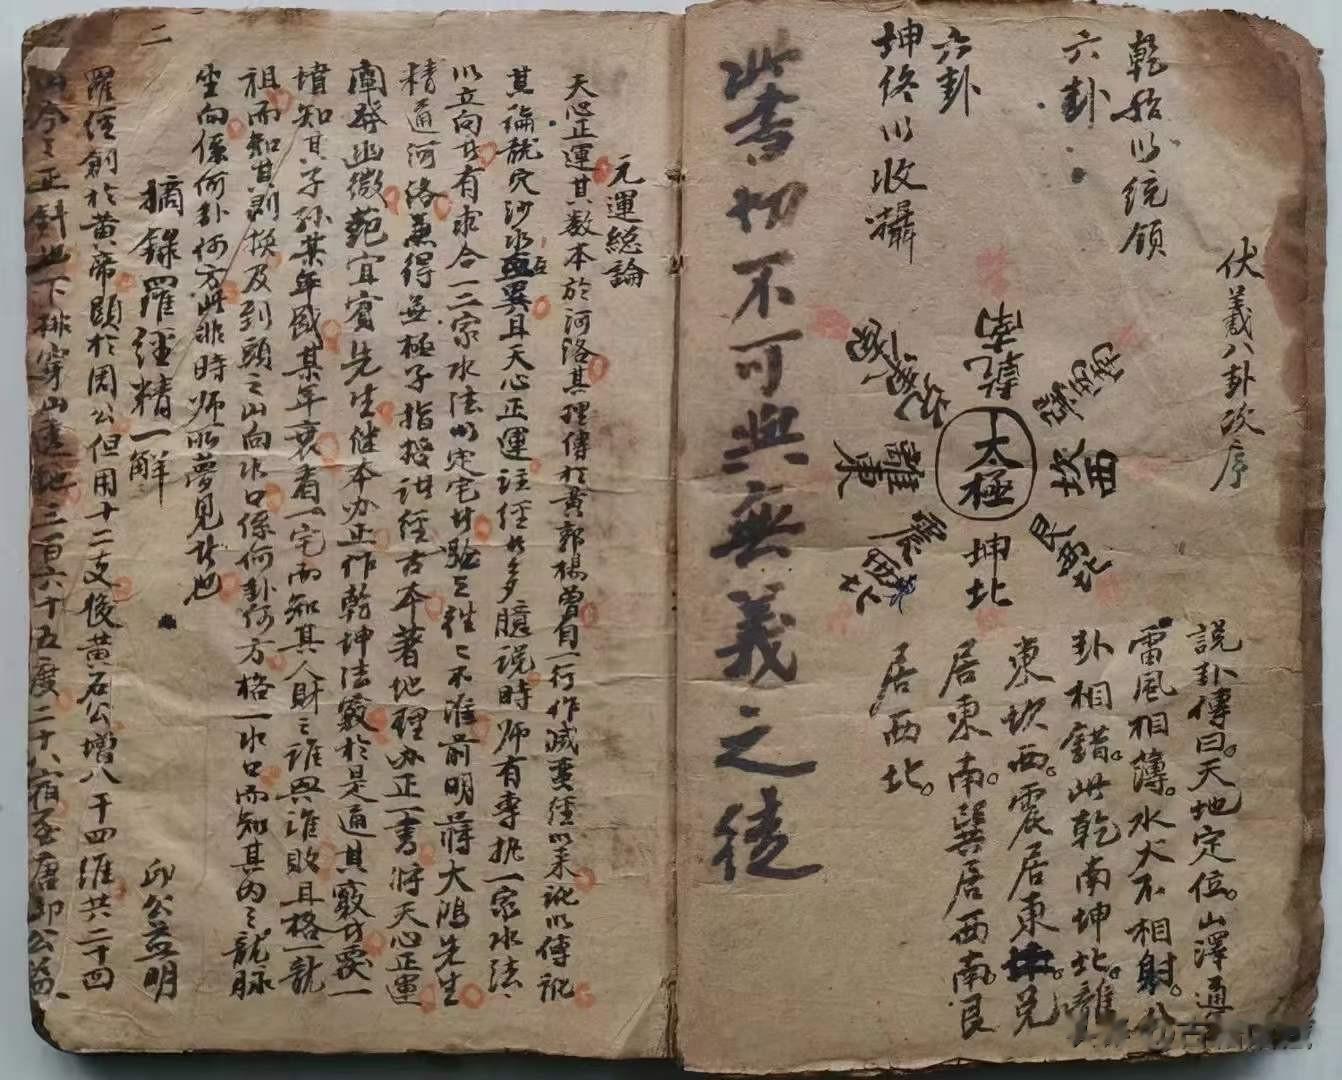 伏羲八卦次序
乾始以統領
六卦
六卦
坤終以收攝
乾南
太極
坤北
離東
坎西
兌東南
震東北
巽西南
艮西北
說卦傳曰。天地定位。山澤通
雷風相薄。水火不相射。八
卦相錯。此乾南坤北。離
東坎西。震居東。兌
居東南。巽居西南艮
居西北。
此書切不可與無義之徒
元運総論
天心正運其数本於河洛其理傳於黄郭楊曾自一行作滅蛮經以来訛以傳訛
其論龍穴沙水無異且天心正運註經者多臆說時师有専挑一家水法
以立向者有求合一二家水法以定宅者驗之往々不准前明蔣大鴻先生
精通河洛兼得無極子指授訣經古本著地理办正一書将天心正運
闡發幽微範宜賓先生継本办正作乾坤法竅於是通其竅者要一
墳知其子孫某年盛某年衰看一宅而知其人財之誰興誰敗且格一龍
祖而知其剥换及到頭之山向水口係何卦何方格一水口而知其内之龍脉
坐向係何卦何方此非時师所夢見者也
摘錄羅經精一解
邱公益明
羅經創於黄帝顕於周公但用十二支後黄石公增八干四維共二十四
山今之正針也下排穿山透地三百六十五度二十八宿至唐邱公益
二